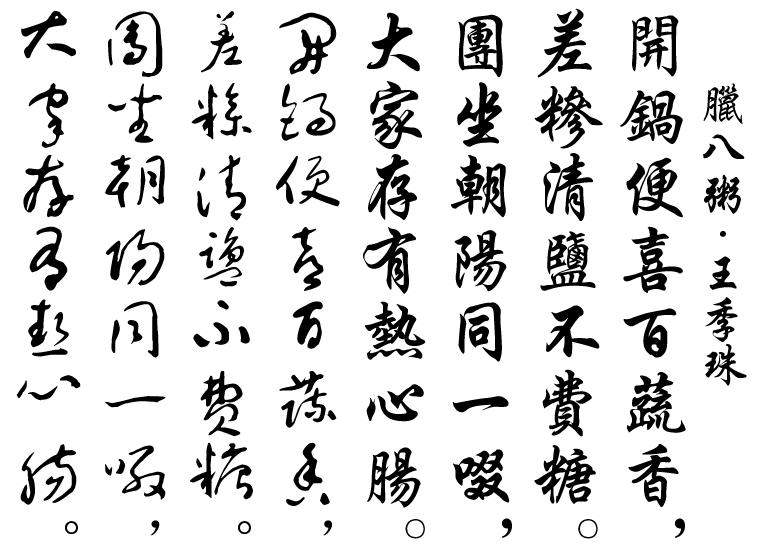 臘八粥·王季珠
開鍋便喜百蔬香，
差糝清鹽不費糖。
團坐朝陽同一啜，
大家存有熱心腸。
開鍋便喜百蔬香，
差糝清鹽不費糖。
團坐朝陽同一啜，
大家存有熱心腸。